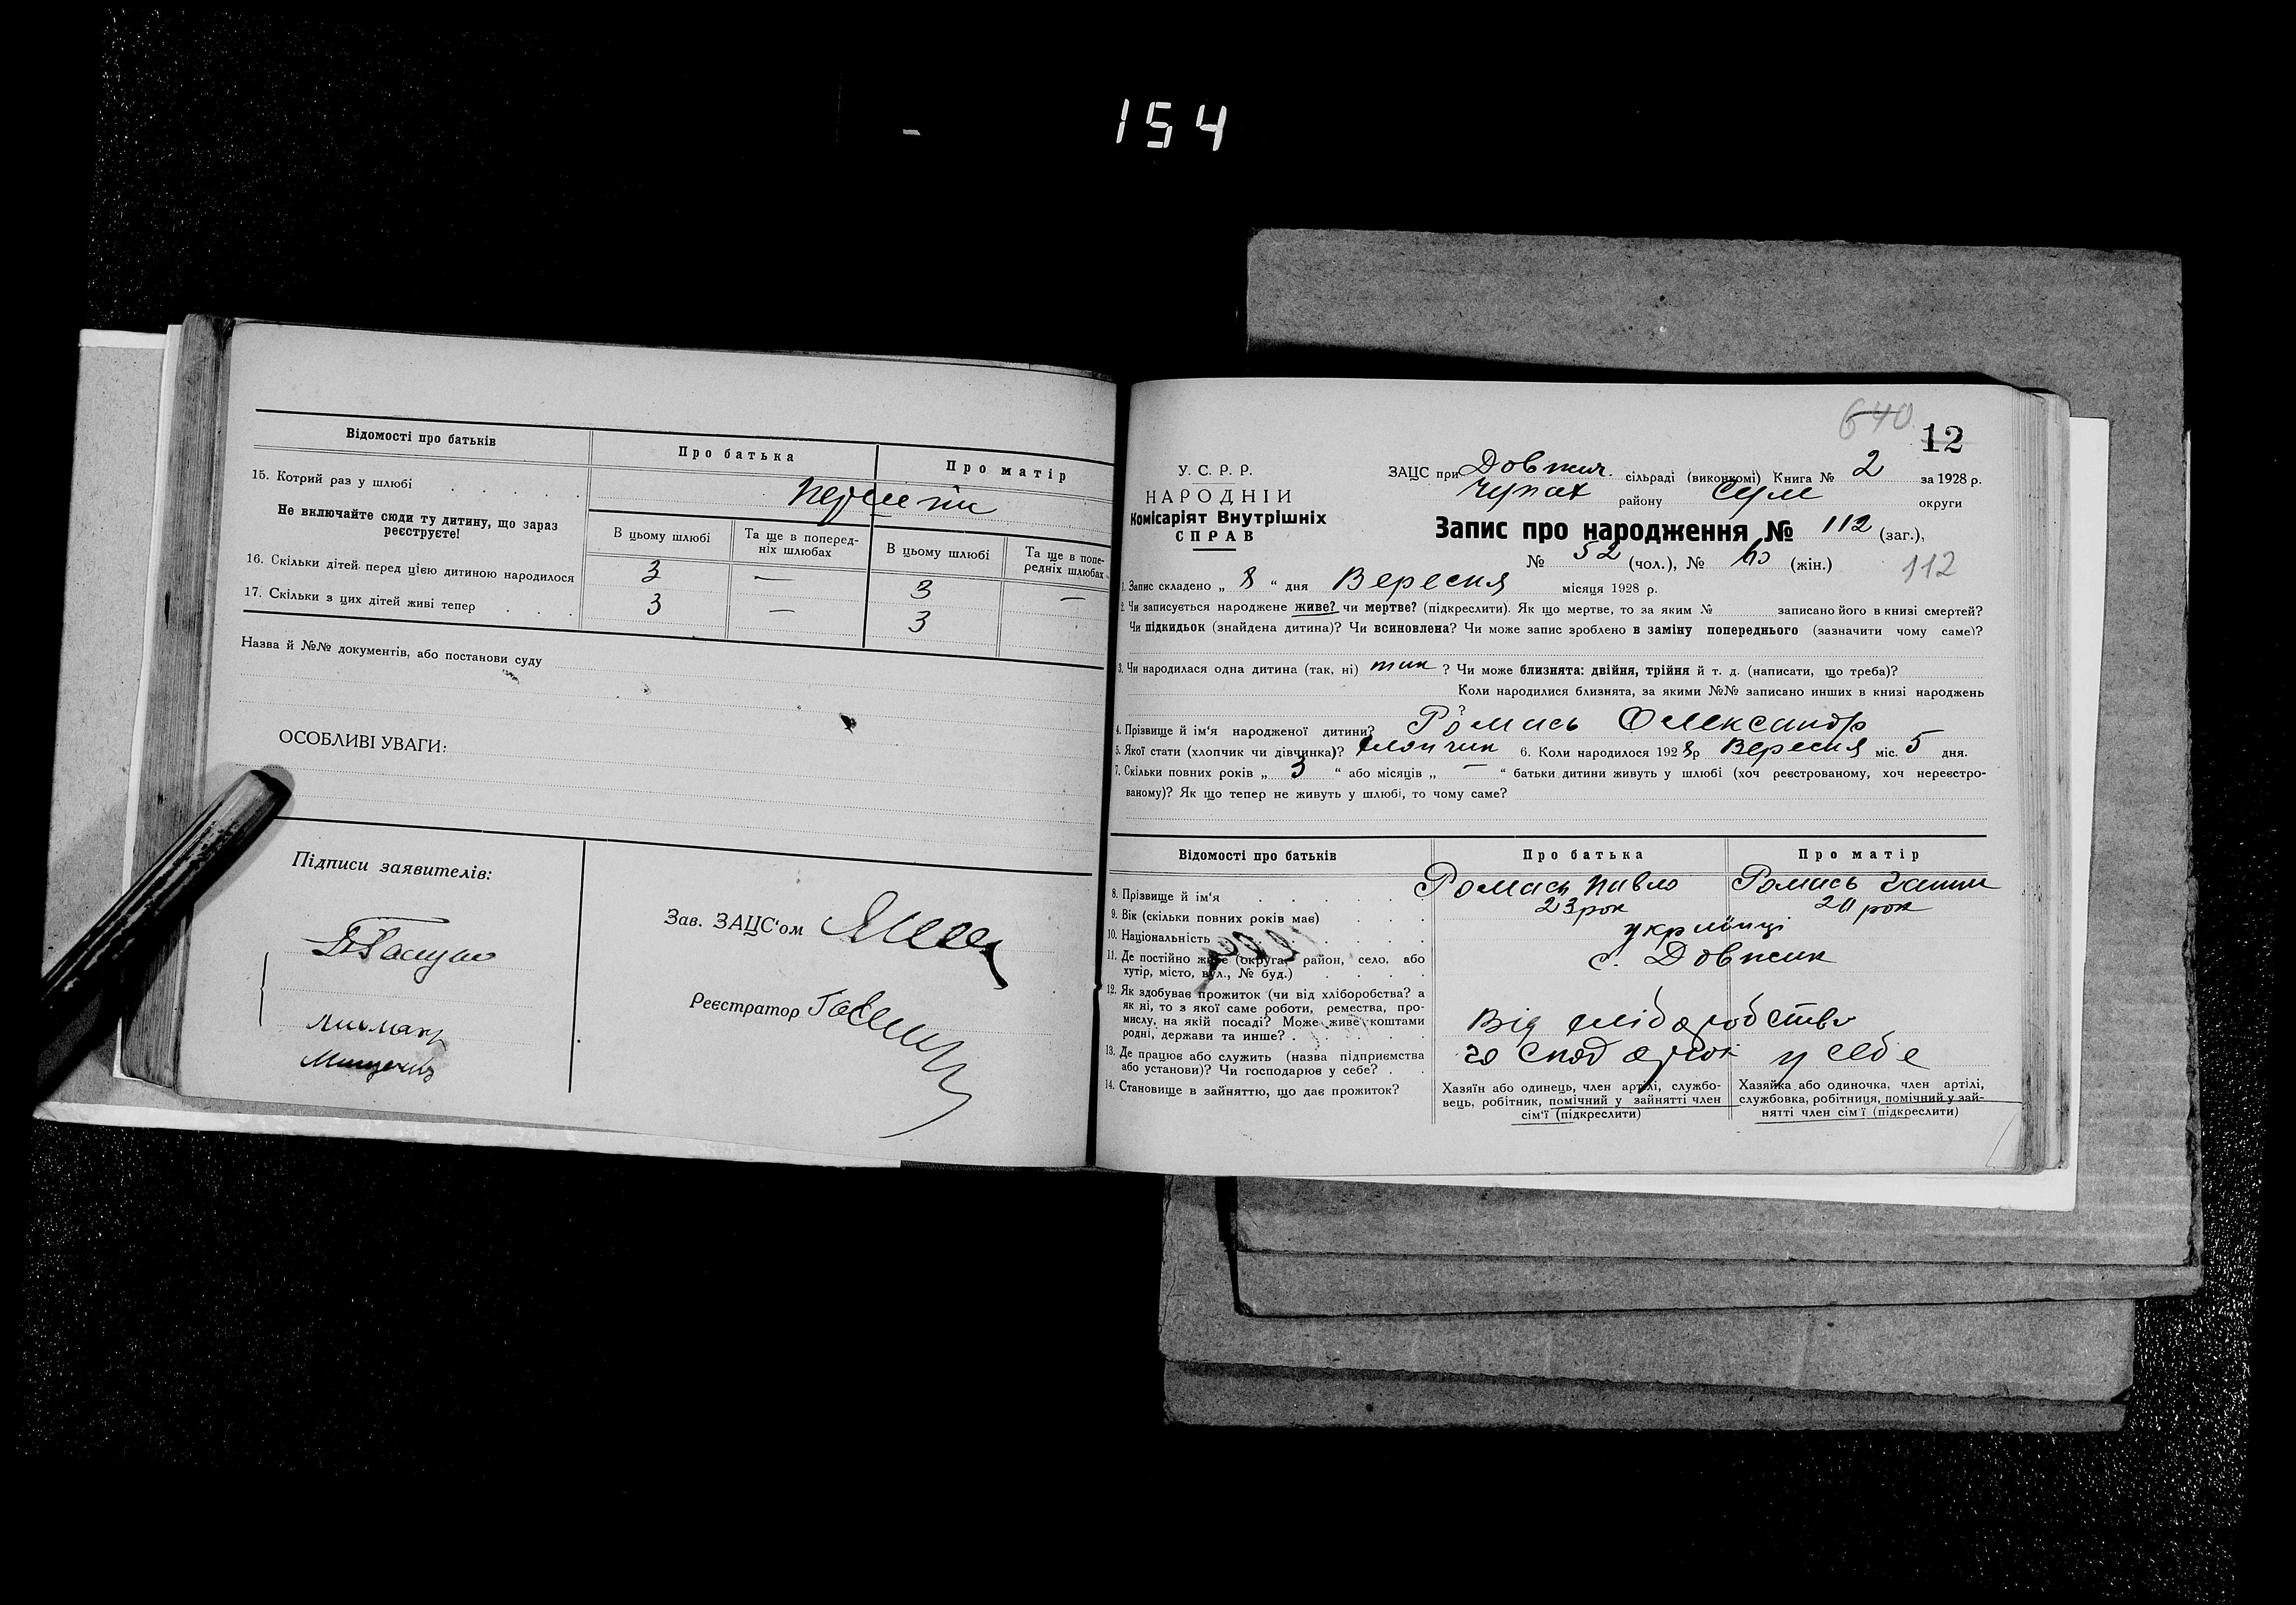 154
Відомості про батьків
Про батька
Про матір
15. Котрий раз у шлюбі
Не включайте сюди ту дитину, що зараз реєструєте!
В цьому шлюбі
Та ще в поперед-
ніх шлюбах
В цьому шлюбі
Та ще в попе-
редніх шлюбах
16. Скільки дітей перед цією дитиною народилося 3 — 3 —
17. Скільки з цих дітей живі тепер 3 — 3
Назва й №№ документів, або постанови суду
ОСОБЛИВІ УВАГИ:
Підписи заявителів:
Зав. ЗАЦС'ом
Реєстратор
640
12
У. С. Р. Р.
НАРОДНІЙ
Комісаріят Внутрішніх
СПРАВ
ЗАЦС при Довжич. сільраді (виконкомі) Книга № 2 за 1928 р.
Чупах району Сум округи
Запис про народження № 112 (заг.),
№ 52 (чол.), № (жін.)
112
1. Запис складено „ 8 “ дня Вересня місяця 1928 р.
2. Чи записується народжене живе? чи мертве? (підкреслити). Як що мертве, то за яким № записано його в книзі смертей?
Чи підкидьок (знайдена дитина)? Чи всиновлена? Чи може запис зроблено в заміну попереднього (зазначити чому саме)?
3. Чи народилася одна дитина (так, ні) так ? Чи може близнята: двійня, трійня й т. д. (написати, що треба)?
Коли народилися близнята, за якими №№ записано инших в книзі народжень
?
4. Прізвище й ім'я народженої дитини? Ромась Олександр
5. Якої стати (хлопчик чи дівчинка)? хлопчик 6. Коли народилося 1928 р Вересня міс. 5 дня.
7. Скільки повних років „ 3 “ або місяців „ — “ батьки дитини живуть у шлюбі (хоч реєстрованому, хоч нереєстро-
ваному)? Як що тепер не живуть у шлюбі, то чому саме?
Відомості про батьків
Про батька
Про матір
8. Прізвище й ім'я Ромась Павло Ромась
9. Вік (скільки повних років має) 23 рок рок
10. Національність українці
11. Де постійно живе (округа, район, село, або
хутір, місто, вул., № буд.)
с. Довжик
12. Як здобуває прожиток (чи від хліборобства? а
як ні, то з якої саме роботи, ремества, про-
мислу, на якій посаді? Може живе коштами
родні, держави та инше?
Від хліборобства
13. Де працює або служить (назва підприємства
або установи)? Чи господарює у себе?
у себе
14. Становище в зайняттю, що дає прожиток?
Хазяїн або одинець, член артілі, службо-
вець, робітник, помічний у зайнятті член
сім'ї (підкреслити)
Хазяйка або одиночка, член артілі,
службовка, робітниця, помічний у зай-
нятті член сім'ї (підкреслити)